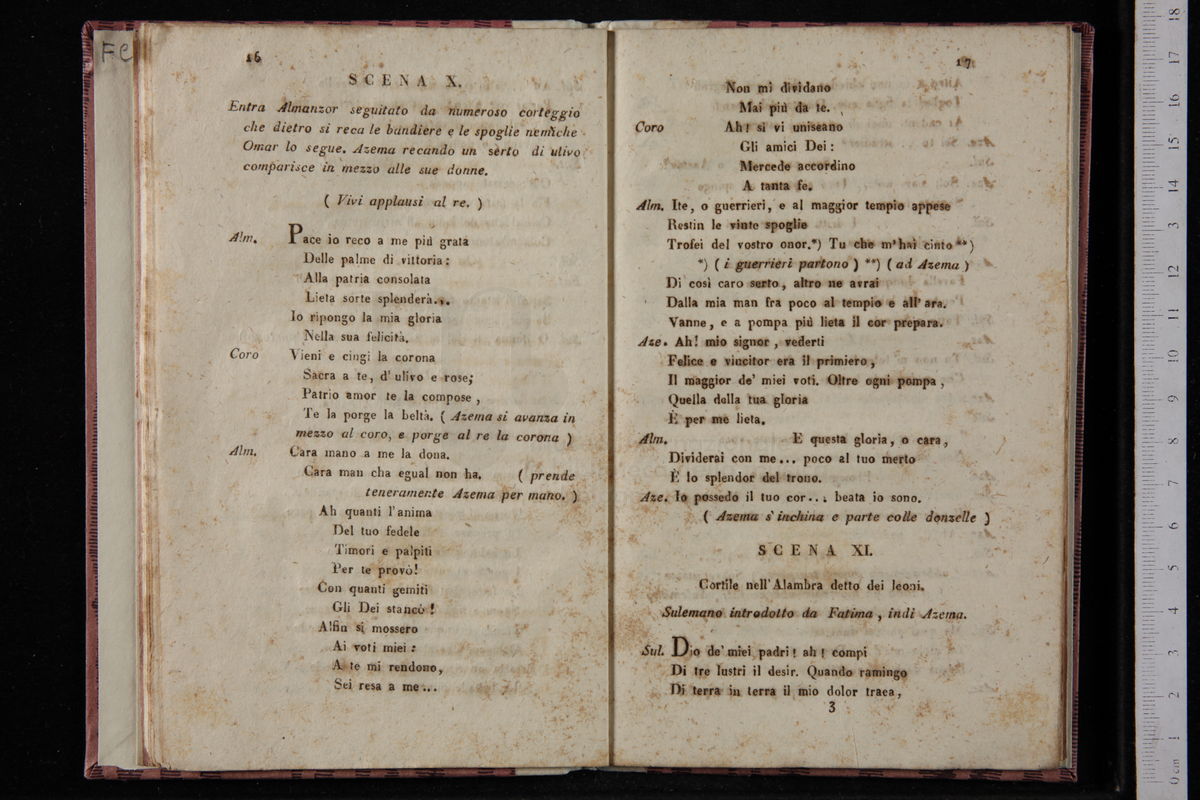 FC
16
SCENA X.
Entra Almanzor seguitato da numeroso corteggio
che dietro si reca le bandiere e le spoglie nemiche
Omar lo segue. Azema recando un serto di ulivo
comparisce in mezzo alle sue donne.
( Vivi applausi al re. )
Alm. Pace io reco a me più grata
Delle palme di vittoria:
Alla patria consolata
Lieta sorte splenderà...
Io ripongo la mia gloria
Nella sua felicità.
Coro Vieni e cingi la corona
Sacra a te, d' ulivo e rose;
Patrio amor te la compose,
Te la porge la beltà. ( Azema si avanza in
mezzo al coro, e porge al re la corona )
Alm. Cara mano a me la dona.
Cara man cha egual non ha. ( prende
teneramente Azema per mano. )
Ah quanti l'anima
Del tuo fedele
Timori e palpiti
Per te provò!
Con quanti gemiti
Gli Dei stancò!
Alfin si mossero
Ai voti miei:
A te mi rendono,
Sei resa a me...
17
Non mi dividano
Mai più da te.
Coro Ah! si vi uniseano
Gli amici Dei:
Mercede accordino
A tanta fe.
Alm. Ite, o guerrieri, e al maggior tempio appese
Restin le vinte spoglie
Trofei del vostro onor.*) Tu che m'hai cinto**)
*) ( i guerrieri partono ) **) ( ad Azema )
Di così caro serto, altro ne avrai
Dalla mia man fra poco al tempio e all' ara.
Vanne, e a pompa più lieta il cor prepara.
Aze. Ah! mio signor, vederti
Felice e vincitor era il primiero,
Il maggior de' miei voti. Oltre ogni pompa,
Quella della tua gloria
È per me lieta.
Alm. E questa gloria, o cara,
Dividerai con me... poco al tuo merto
È lo splendor del trono.
Aze. Io possedo il tuo cor... beata io sono.
( Azema s' inchina e parte colle donzelle )
SCENA XI.
Cortile nell' Alambra detto dei leoni.
Sulemano introdotto da Fatima, indi Azema.
Sul. Dio de' miei padri! ah! compi
Di tre lustri il desir. Quando ramingo
Di terra in terra il mio dolor traea,
3
0 cm 1 2 3 4 5 6 7 8 9 10 11 12 13 14 15 16 17 18